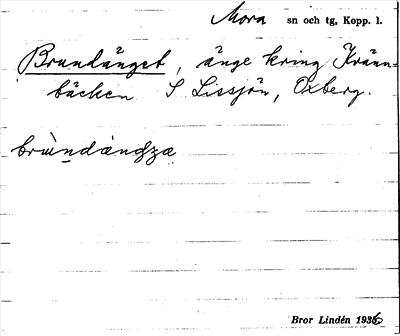 Mora sn och tg, Kopp. l.
Brundänget, änge kring Kränn-
bäcken S Lissjön, Oxberg.
brùndàndʒæ
Bror Lindén 1936